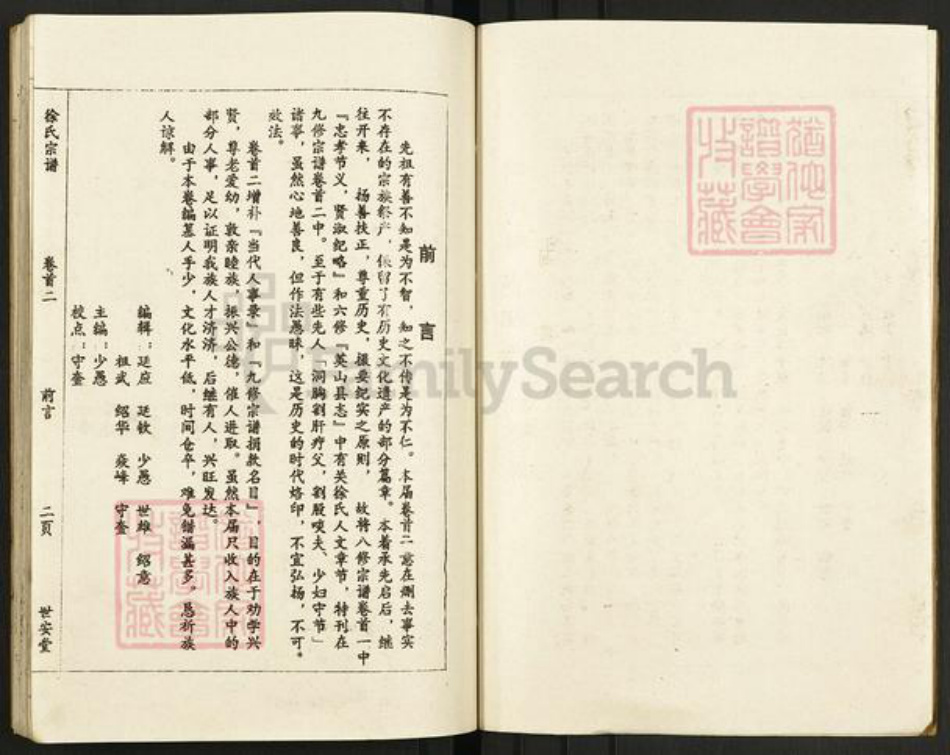 前言
先祖有善不知是为不智，知之不传是为不仁。本届卷首二意在删去事实
不存在的宗族祭产，保留了有历史文化遗产的部分篇章。本着承先启后，继
往开来，扬善扶正，尊重历史，撮要纪实之原则，故将八修宗谱卷首一中
『忠孝节义，贤淑纪略』和六修『英山县志』中有关徐氏人文章节，特刊在
九修宗谱卷首二中。至于有些先人「洞胸割肝疗父，割股啖夫、少妇守节」
诸事，虽然心地善良，但作法愚昧，这是历史的时代烙印，不宜弘扬，不可
效法。
卷首二增补『当代人事录』和『九修宗谱捐款名目』，目的在于劝学兴
贤，尊老爱幼，敦亲睦族，振兴公德，催人进取。虽然本届尺收入族人中的
部分人事，足以证明我族人才济济，后继有人，兴旺发达。
由于本卷编纂人手少，文化水平低，时间仓卒，难免错漏甚多。恳祈族
人谅解。
编辑：延应 延钦 少愚 世雄 绍意
祖武 绍华 焱峰 守奎
主编：少愚
校点：守奎
徐氏宗谱 卷首二 前言 二页 世安堂
猶他家
譜學會
收藏
猶他家
譜學會
收藏
FamilySearch